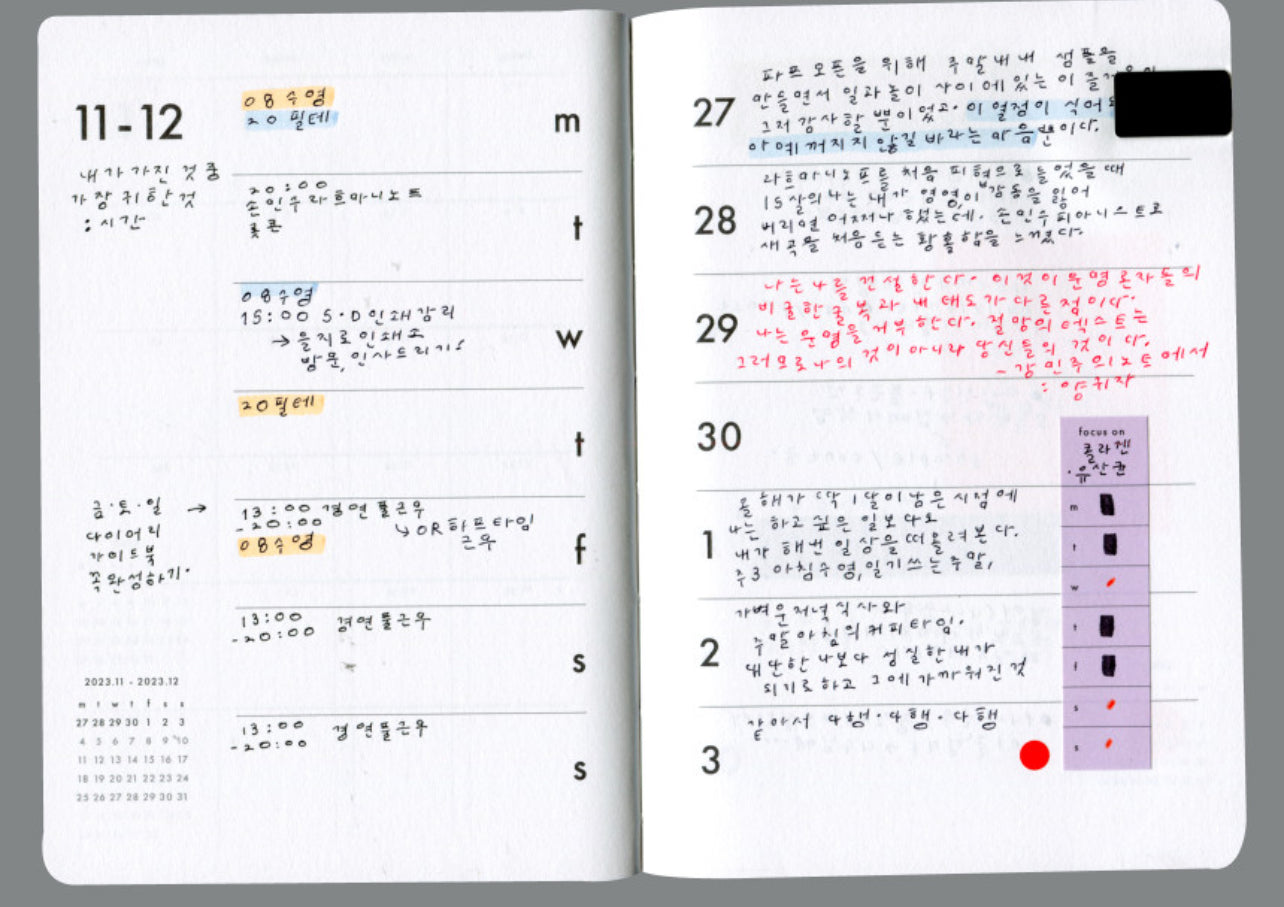 11-12
내가 가진 것 중
가장 귀한 것
: 시간
08수영
20 필테
m
20:00
손민수 라흐마니노프
롯콘
t
08수영
15:00 S·D 인쇄감리
→ 을지로 인쇄소
방문, 인사드리기!
w
20필테
t
금·토·일 →
다이어리
가이드북
꼭 완성하기.
13:00 경연풀근무
-20:00
↳ OR 하프타임
근무
08수영
f
13:00 경연풀근무
-20:00
s
13:00 경연풀근무
-20:00
s
2023.11 - 2023.12
m t w t f s s
27 28 29 30 1 2 3
4 5 6 7 8 9 10
11 12 13 14 15 16 17
18 19 20 21 22 23 24
25 26 27 28 29 30 31
27
오픈을 위해 주말내내 샘플을
만들면서 일과 놀이 사이에 있는 이
그저 감사할 뿐이었고. 이 열정이 식어
아예 꺼지지 않길 바라는 마음뿐이다.
28
를 처음 으로 들었을 때
15살의 나는 내가 영영 이 감동을 잃어
버리면 어쩌나 했는데. 손민수 피아니스트로
새 곡을 처음 듣는 황홀함을 느꼈다.
29
나는 나를 건설한다. 이것이 운명론자들의
비굴한 굴복과 내 태도가 다른 점이다.
나는 운명을 거부한다. 절망의 텍스트는
그러므로 나의 것이 아니라 당신들의 것이다.
- 강민주의 노트에서
: 양귀자
30
focus on
콜라겐
·유산균
m
t
w
t
f
s
s
1
올해가 딱 1달이 남은 시점에
나는 하고 싶은 일보다도
내가 해낸 일상을 떠올려본다.
주3 아침수영, 일기쓰는 주말,
2
가벼운 저녁식사와
주말 아침의 커피타임.
대단한 나보다 성실한 내가
되기로 하고 그에 가까워진 것
3
같아서 다행·다행·다행